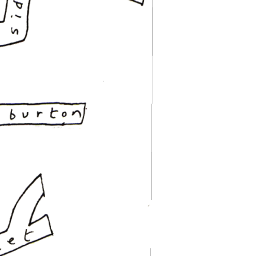 sid
burton
et